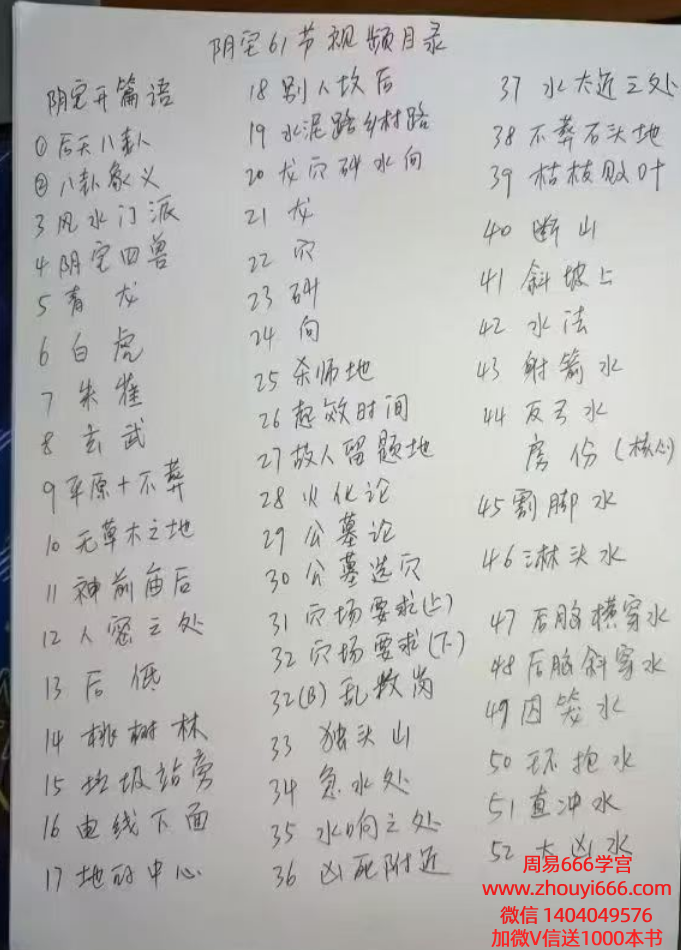 阴宅61节视频目录
阴宅开篇语
①后天八卦
②八卦象义
3 风水门派
4 阴宅四兽
5 青龙
6 白虎
7 朱雀
8 玄武
9 平原十不葬
10 无草木之地
11 神前庙后
12 人密之处
13 后低
14 桃树林
15 垃圾站旁
16 电线下面
17 地的中心
18 别人坟后
19 水泥路乡村路
20 龙穴砂水向
21 龙
22 穴
23 砂
24 向
25 杀师地
26 起效时间
27 故人留题地
28 火化论
29 公墓论
30 公墓选穴
31 穴场要求(上)
32 穴场要求(下)
32(B) 乱葬岗
33 独头山
34 急水处
35 水响之处
36 凶死附近
37 水太近之处
38 不葬石头地
39 枯枝败叶
40 断山
41 斜坡上
42 水法
43 射箭水
44 反弓水
房份(核心)
45 割脚水
46 淋头水
47 后脑横穿水
48 后脑斜穿水
49 水
50 环抱水
51 直冲水
52 大凶水
周易666学宫
www.zhouyi666.com
微信 1404049576
加微V信送1000本书